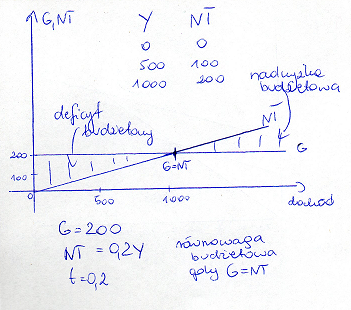 G, NT
Y NT
0 0
500 100
1000 200
nadwyżka
budżetowa
deficyt
budżetowy
NT
200
G
100
G=NT
0
500
1000
dochód
G = 200
NT = 0,2Y
t = 0,2
równowaga
budżetowa
gdy G = NT